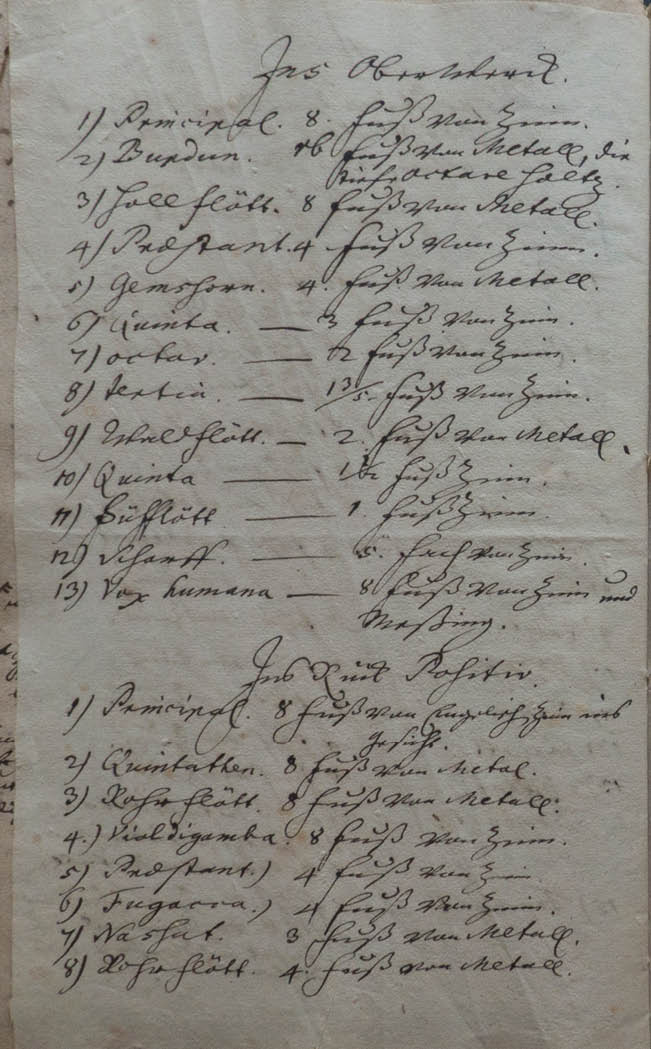 Ins OberWerck.
1) Principal. 8. Fuß von Zinn.
2) Burdun. 16 Fuß von Metall, die
tiefe octave Holtz.
3) Holl flött. 8 Fuß von Metall.
4) Præstant. 4 Fuß von Zinn.
5) Gemshorn. 4. Fuß von Metall.
6) Quinta. — 3 Fuß von Zinn.
7) octav. — 2 Fuß von Zinn.
8) tertia. — 1 3/5. Fuß von Zinn.
9) Waldflött. — 2. Fuß von Metall.
10) Quinta — 1 1/2 Fuß Zinn.
11) Süfflött — 1. Fuß Zinn.
12) Scharff. — 5. fach von Zinn.
13) Vox humana — 8 Fuß von Zinn und
Meßing.
Ins Rück Positiv.
1) Principal. 8 Fuß von Englisch Zinn ins
gesicht.
2) Quintathen. 8 Fuß von Metal.
3) Rohrflött. 8 Fuß von Metall.
4.) Violdigamba. 8 Fuß von Zinn.
5) Præstant.) 4 Fuß von Zinn
6) Fugacca.) 4 Fuß von Zinn.
7) Nashat. 3 Fuß von Metall.
8) Rohrflött. 4. Fuß von Metall.